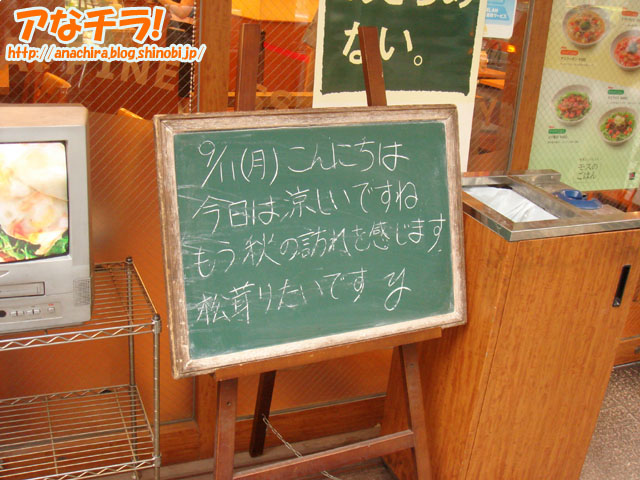 アなチラ!
http://anachira.blog.shinobi.jp/
ない。
9/11(月)こんにちは
今日は涼しいですね
もう秋の訪れを感じます
松茸りたいです
モスの
ごはん